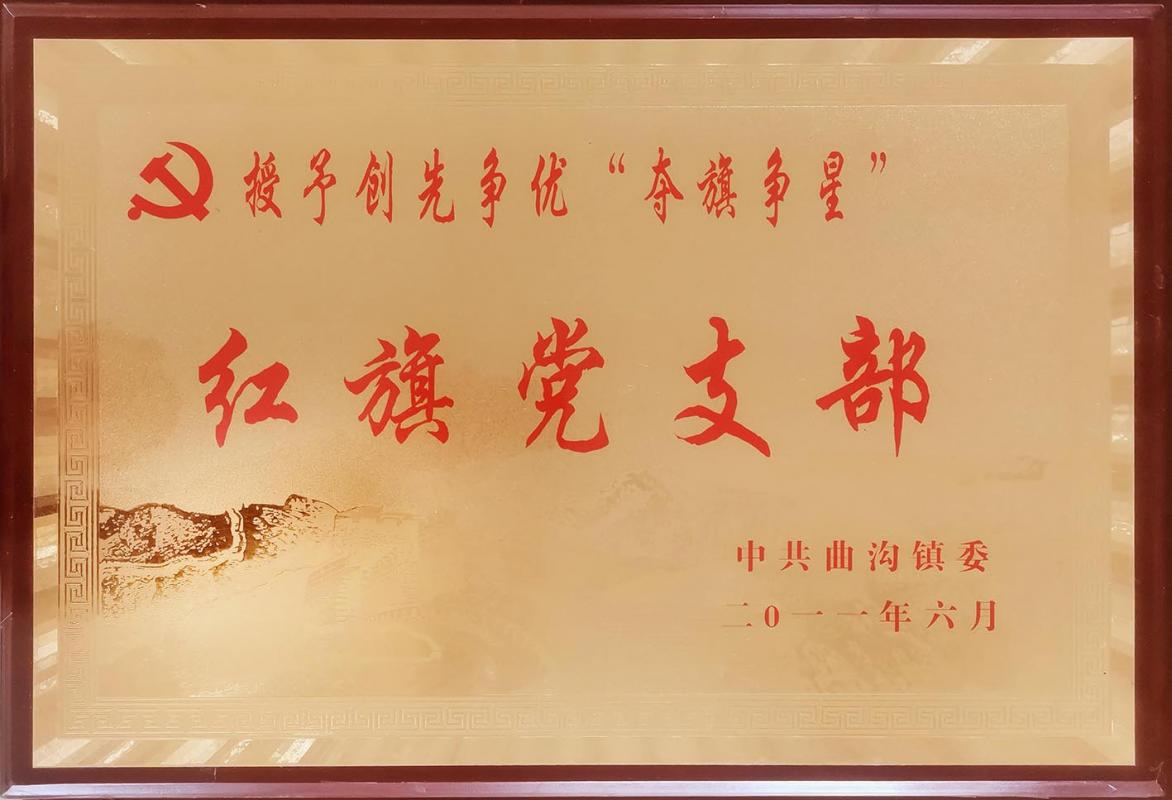 授予创先争优“夺旗争星”
红旗党支部
中共曲沟镇委
二0一一年六月